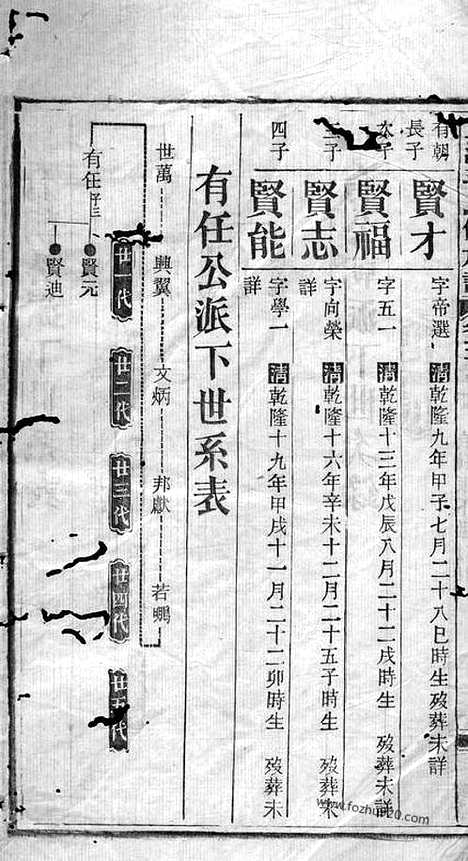 有朝長子
賢才 字帝選 清乾隆九年甲子七月二十八巳時生歿葬未詳
次子
賢福 字五一 清乾隆十三年戊辰八月二十二戌時生 歿葬未詳
三子
賢志 字向榮 清乾隆十六年辛未十二月二十五子時生 歿葬未詳
四子
賢能 字學一 清乾隆十九年甲戌十一月二十二卯時生 歿葬未詳
有任公派下世系表
世萬 興翼 文炳 邦獻 若鵬
廿一代 廿二代 廿三代 廿四代 廿五代
有任 賢元
賢迪
www.fozhu920.com